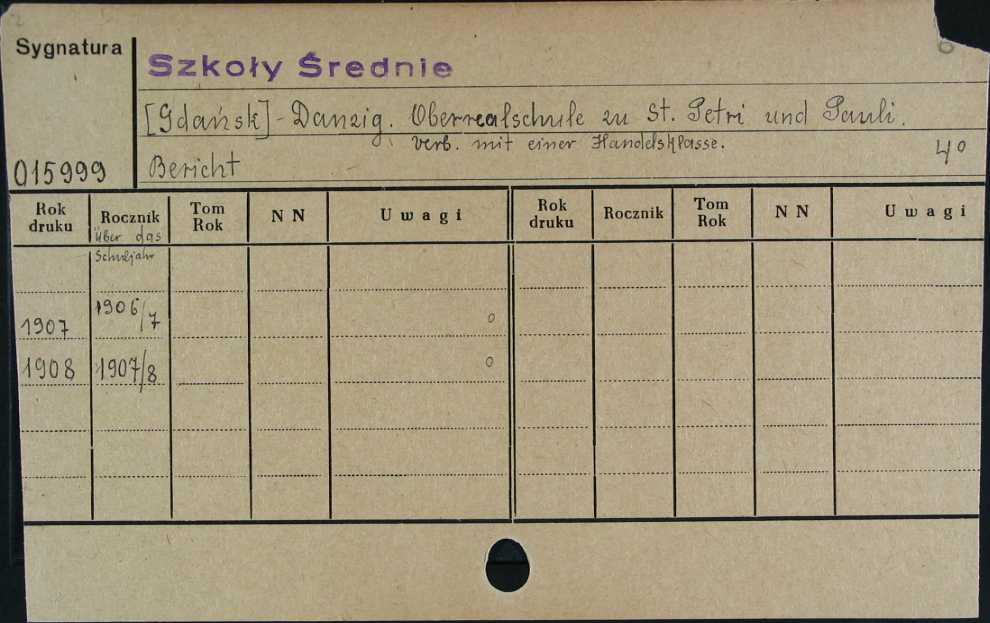 Sygnatura
Szkoły Średnie
[Gdańsk] - Danzig. Oberrealschule zu St. Petri und Pauli.
verb. mit einer Handelsklasse.
4°
015999
Bericht
Rok druku Rocznik Tom Rok NN Uwagi Rok druku Rocznik Tom Rok NN Uwagi
über das
Schuljahr
1907 1906/7 o
1908 1907/8 o